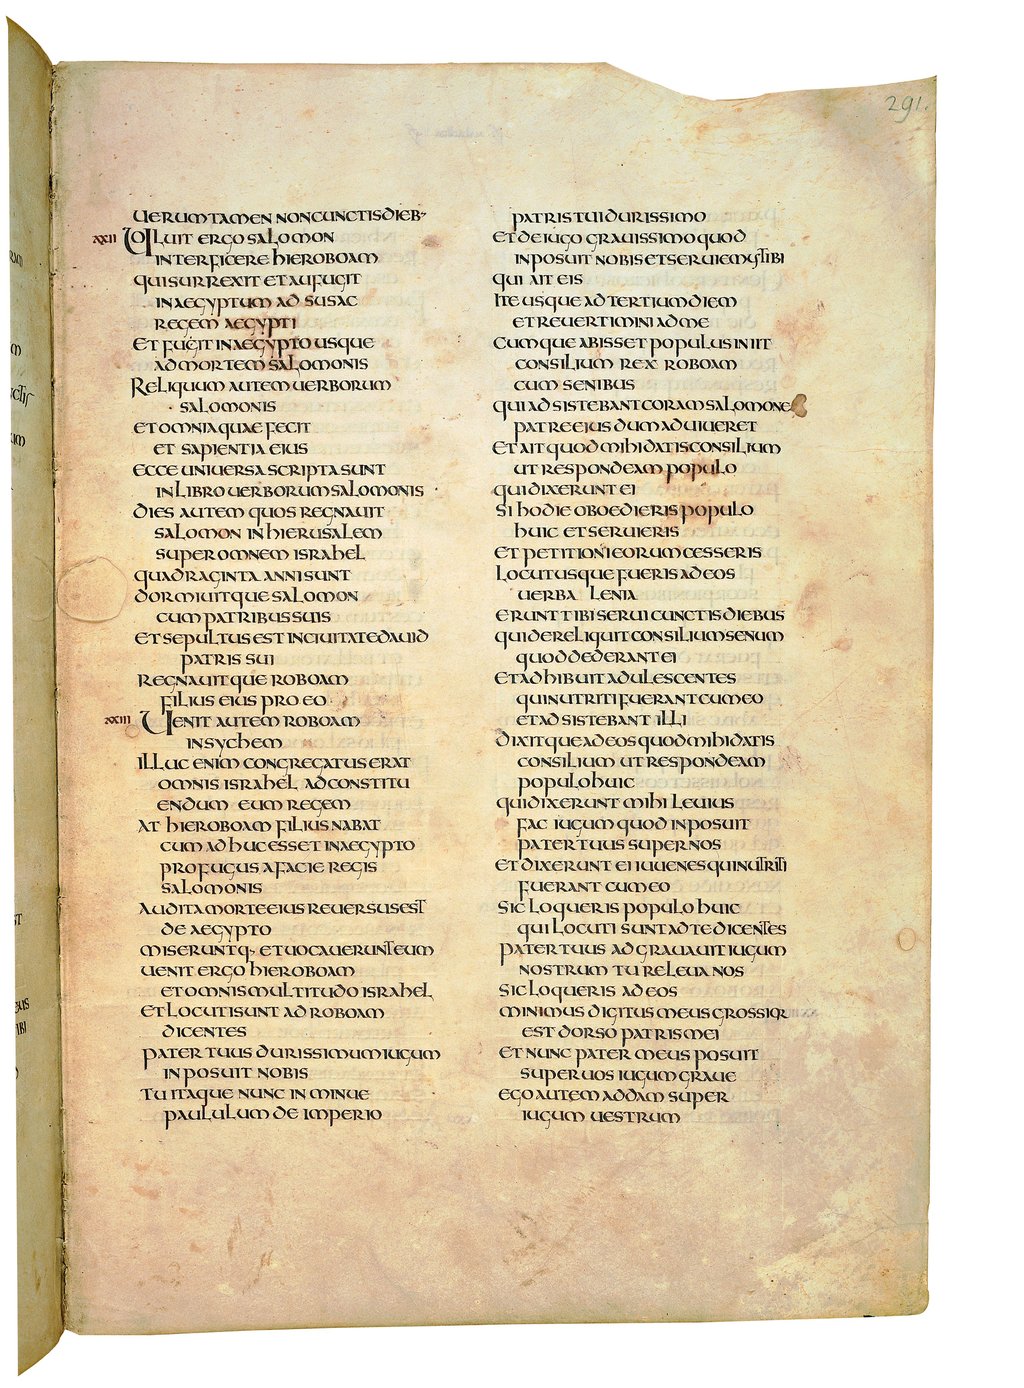 291.
UERUMTAMEN NON CUNCTIS DIEB·
XXII UOLUIT ERGO SALOMON
INTERFICERE HIEROBOAM
QUI SURREXIT ET AUFUGIT
IN AEGYPTUM AD SUSAC
REGEM AEGYPTI
ET FUGIT IN AEGYPTO USQUE
AD MORTEM SALOMONIS
RELIQUUM AUTEM UERBORUM
SALOMONIS
ET OMNIA QUAE FECIT
ET SAPIENTIA EIUS
ECCE UNIUERSA SCRIPTA SUNT
IN LIBRO UERBORUM SALOMONIS
DIES AUTEM QUOS REGNAUIT
SALOMON IN HIERUSALEM
SUPER OMNEM ISRAHEL
QUADRAGINTA ANNI SUNT
DORMIUITQUE SALOMON
CUM PATRIBUS SUIS
ET SEPULTUS EST IN CIUITATE DAUID
PATRIS SUI
REGNAUITQUE ROBOAM
FILIUS EIUS PRO EO
XXIII UENIT AUTEM ROBOAM
IN SYCHEM
ILLUC ENIM CONGREGATUS ERAT
OMNIS ISRAHEL AD CONSTITU
ENDUM EUM REGEM
AT HIEROBOAM FILIUS NABAT
CUM ADHUC ESSET IN AEGYPTO
PROFUGUS A FACIE REGIS
SALOMONIS
AUDITA MORTE EIUS REUERSUS EST
DE AEGYPTO
MISERUNTQ· ET UOCAUERUNT EUM
UENIT ERGO HIEROBOAM
ET OMNIS MULTITUDO ISRAHEL
ET LOCUTI SUNT AD ROBOAM
DICENTES
PATER TUUS DURISSIMUM IUGUM
INPOSUIT NOBIS
TU ITAQUE NUNC INMINUE
PAULULUM DE IMPERIO
PATRIS TUI DURISSIMO
ET DE IUGO GRAUISSIMO QUOD
INPOSUIT NOBIS ET SERUIEMUS TIBI
QUI AIT EIS
ITE USQUE AD TERTIUM DIEM
ET REUERTIMINI AD ME
CUMQUE ABISSET POPULUS INIIT
CONSILIUM REX ROBOAM
CUM SENIBUS
QUI ADSISTEBANT CORAM SALOMONE
PATRE EIUS DUM ADUIUERET
ET AIT QUOD MIHI DATIS CONSILIUM
UT RESPONDEAM POPULO
QUI DIXERUNT EI
SI HODIE OBOEDIERIS POPULO
HUIC ET SERUIERIS
ET PETITIONI EORUM CESSERIS
LOCUTUSQUE FUERIS AD EOS
UERBA LENIA
ERUNT TIBI SERUI CUNCTIS DIEBUS
QUI DERELIQUIT CONSILIUM SENUM
QUOD DEDERANT EI
ET ADHIBUIT ADULESCENTES
QUI NUTRITI FUERANT CUM EO
ET ADSISTEBANT ILLI
DIXITQUE AD EOS QUOD MIHI DATIS
CONSILIUM UT RESPONDEAM
POPULO HUIC
QUI DIXERUNT MIHI LEUIUS
FAC IUGUM QUOD INPOSUIT
PATER TUUS SUPER NOS
ET DIXERUNT EI IUUENES QUI NUTRITI
FUERANT CUM EO
SIC LOQUERIS POPULO HUIC
QUI LOCUTI SUNT AD TE DICENTES
PATER TUUS ADGRAUAUIT IUGUM
NOSTRUM TU RELEUA NOS
SIC LOQUERIS AD EOS
MINIMUS DIGITUS MEUS GROSSIOR
EST DORSO PATRIS MEI
ET NUNC PATER MEUS POSUIT
SUPER UOS IUGUM GRAUE
EGO AUTEM ADDAM SUPER
IUGUM UESTRUM